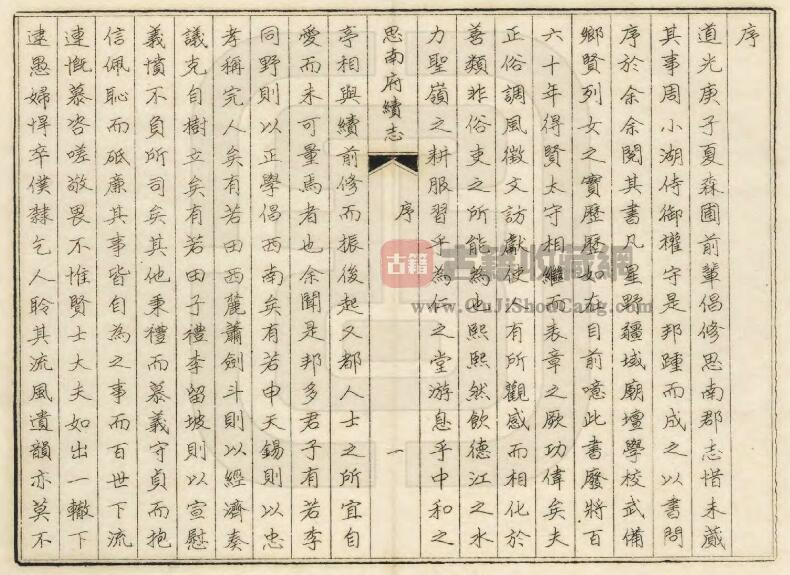 序
道光庚子夏森圃前輩倡修思南郡志惜未蕆
其事周小湖侍御權守是邦踵而成之以書問
序於余余閱其書凡星野疆域廟壇學校武備
鄉賢列女之實歷歷如在目前噫此書廢將百
六十年得賢太守相繼而表章之厥功偉矣夫
正俗調風徵文訪獻使人有所觀感而相化於
善類非俗吏之所能為也熙熙然飲德江之水
力聖嶺之耕服習乎為仁之堂游息乎中和之
思南府續志
序
一
亭相與續前修而振後起又都人士之所宜自
愛而未可量焉者也余聞是邦多君子有若李
同野則以正學倡西南矣有若申天錫則以忠
孝稱完人矣有若田西麓蕭劍斗則以經濟奏
議克自樹立矣有若田子禮李留坡則以宣慰
義憤不負所司矣其他秉禮而慕義守貞而抱
信佩恥而砥廉其事皆自為之事而百世下流
連慨慕咨嗟敬畏不惟賢士大夫如出一轍下
逮愚婦悍卒僕隸乞人聆其流風遺韻亦莫不
古籍
古籍收藏網
www.GuJiShouCang.com